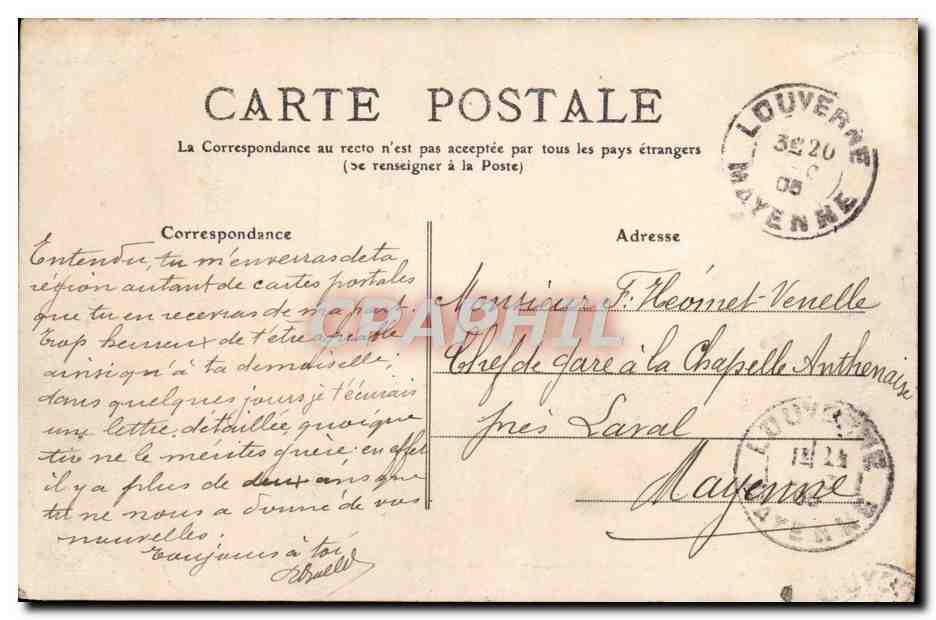 CARTE POSTALE
La Correspondance au recto n'est pas acceptée par tous les pays étrangers
(Se renseigner à la Poste)
LOUVERNE
3E 20
05
MAYENNE
Correspondance
Adresse
Entendu, tu m'enverras de ta
région autant de cartes postales
que tu en recevras de ma part.
Trop heureux de t'être agréable
ainsi qu'à ta demoiselle;
dans quelques jours je t'écrirais
une lettre détaillée, quoique
tu ne le mérites guère: en effet
il y a plus de deux ans que
tu ne nous a donné de vos
nouvelles.
Toujours à toi
Monsieur F. Héomet-Venelle
Chef de gare à la Chapelle Anthenaise
près Laval
Mayenne
LOUVERNE
MAYENNE
CPAPHIL